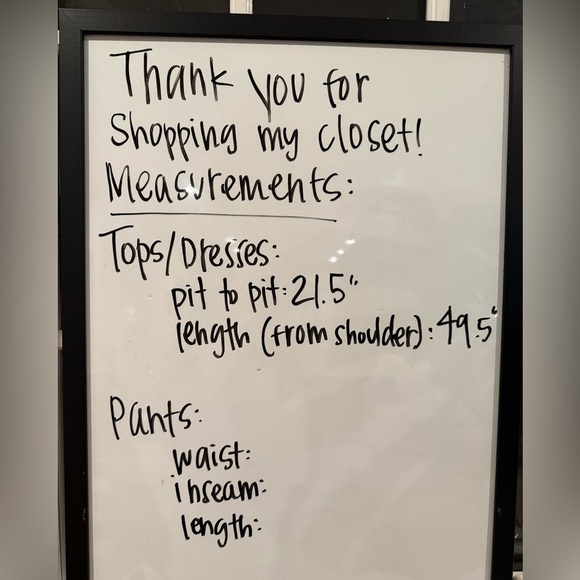 Thank you for
Shopping my closet!
Measurements:
Tops/Dresses:
pit to pit: 21.5"
length (from shoulder): 49.5"
Pants:
waist:
inseam:
length: